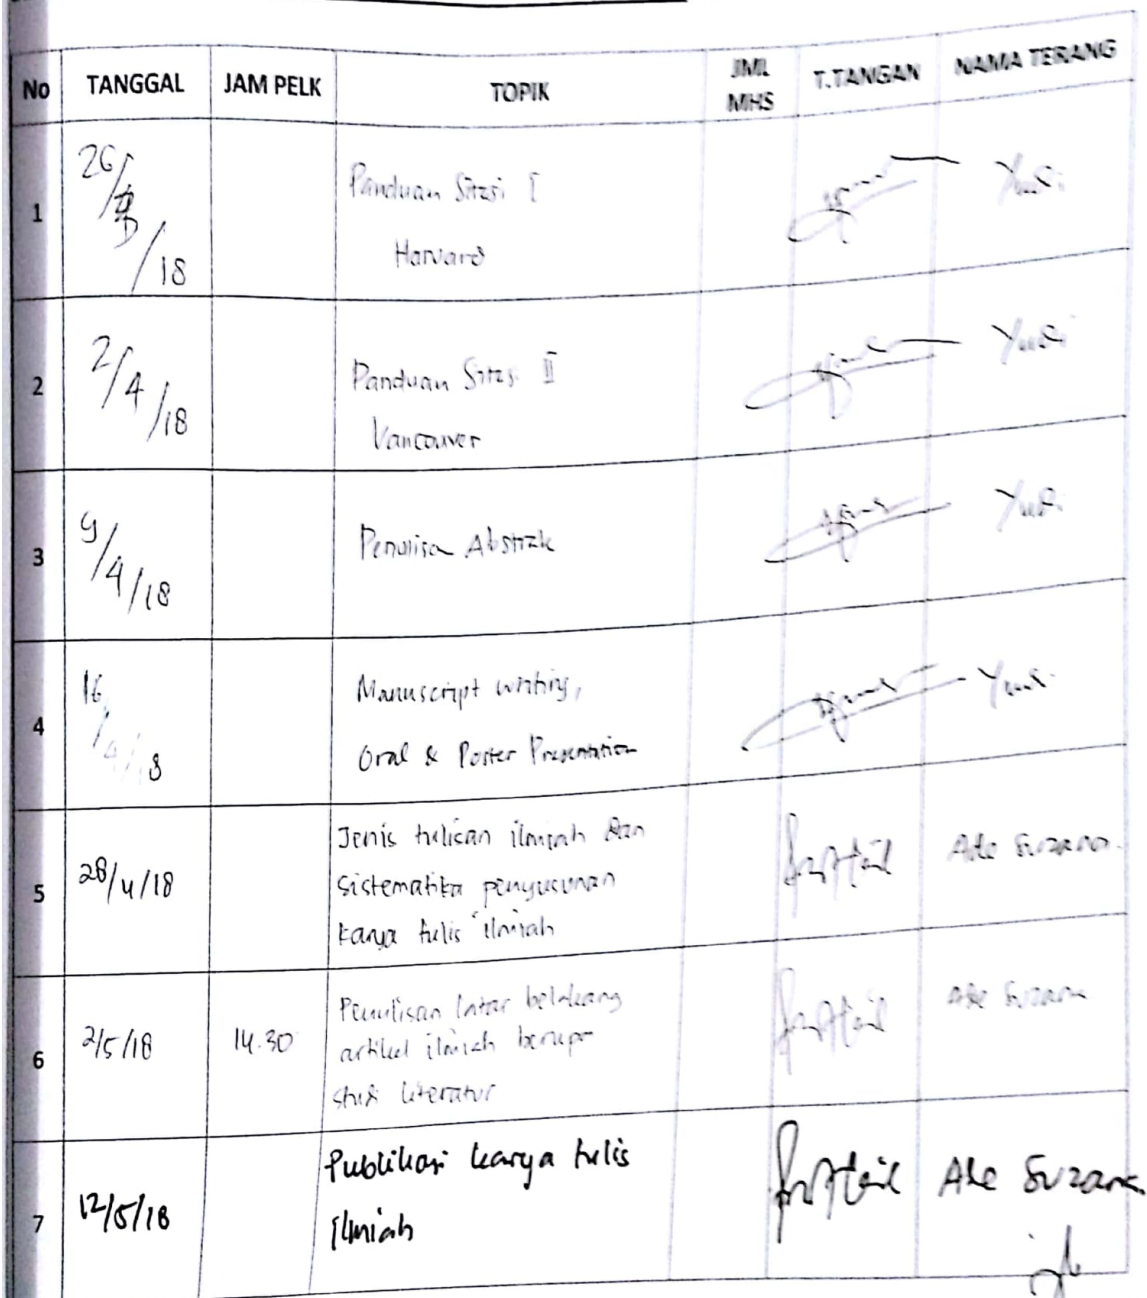 No TANGGAL JAM PELK TOPIK JML MHS T.TANGAN NAMA TERANG
1 26/ /18 Panduan Sitasi I
Harvard
Yudi
2 2/4/18 Panduan Sitasi II
Vancouver
Yudi
3 9/4/18 Penulisa Abstrak Yudi
4 16/4/18 Manuscript writing,
Oral & Poster Presentation
Yudi
5 28/4/18 Jenis tulisan ilmiah dan
sistematika penyusunan
karya tulis ilmiah
Ade Suzana
6 2/5/18 14.30 Penulisan latar belakang
artikel ilmiah berupa
studi literatur
Ade Suzana
7 12/5/18 Publikasi karya tulis
ilmiah
Ade Suzana